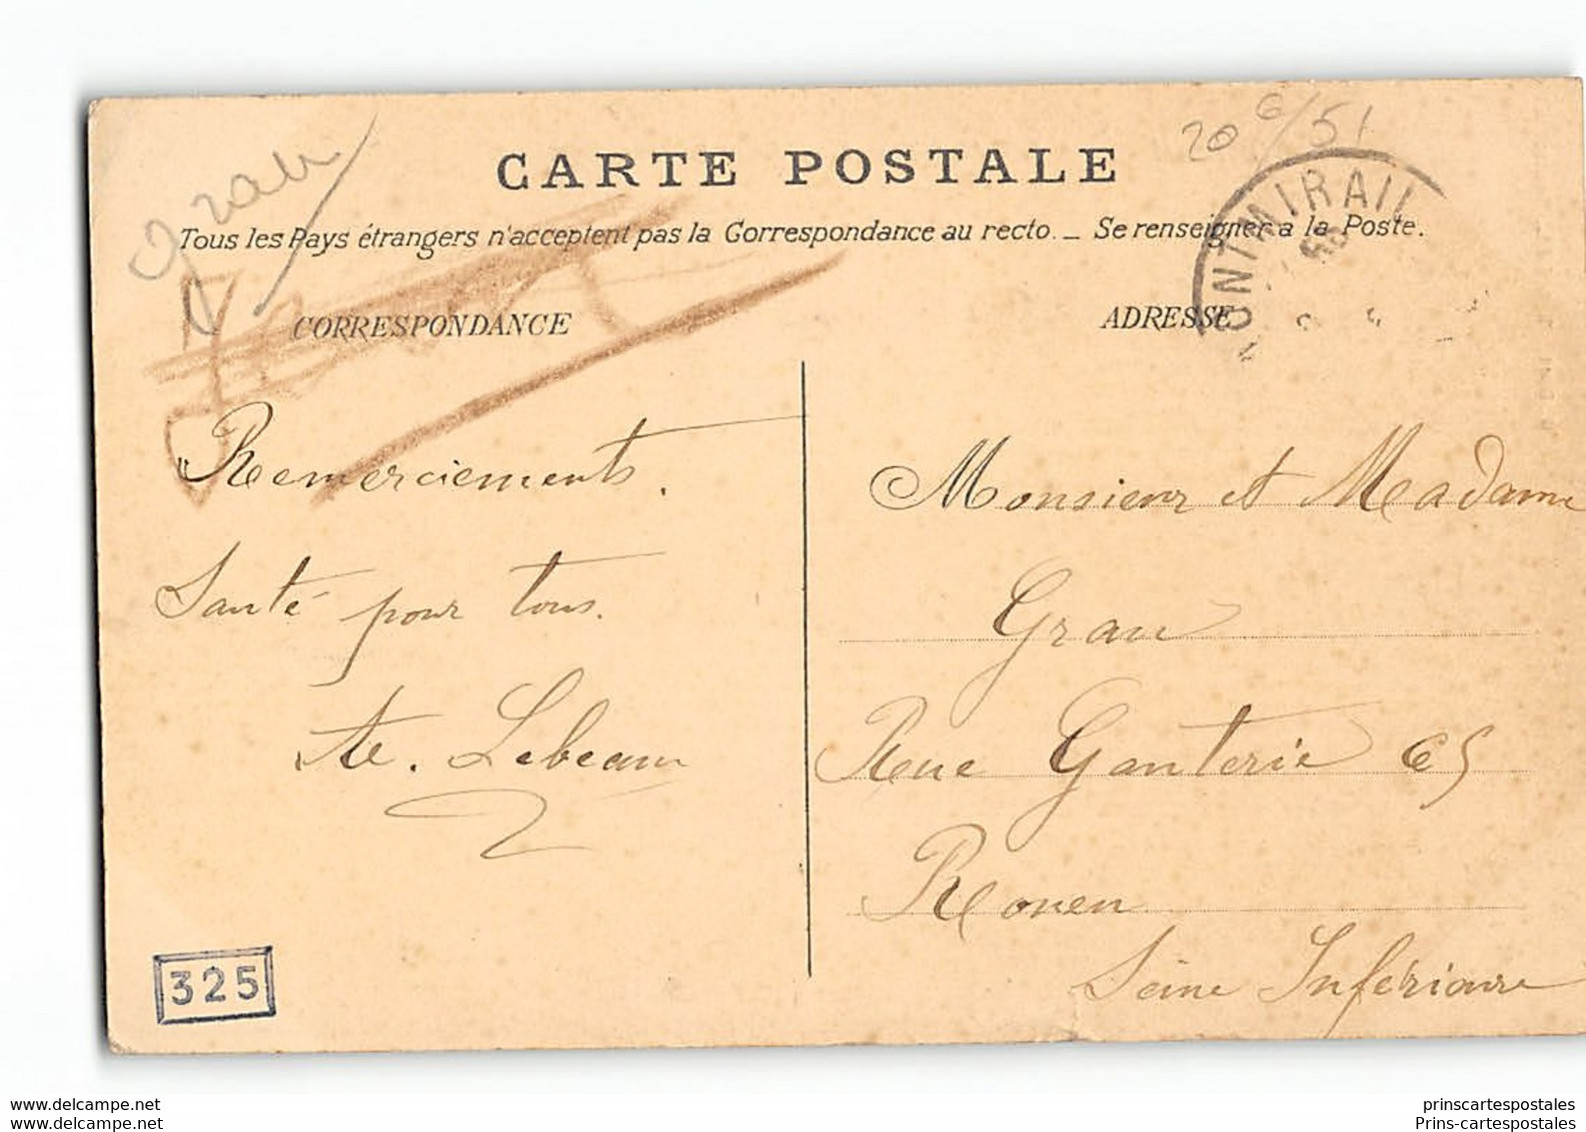 20 6/51
CARTE POSTALE
Tous les Pays étrangers n'acceptent pas la Correspondance au recto. _ Se renseigner a la Poste.
CORRESPONDANCE
ADRESSE
MONTMIRAIL
Remerciements.
Santé pour tous.
Lebeau
Monsieur et Madame
Grau
Rue Ganterie 65
Rouen
Seine Inférieure
325
www.delcampe.net
www.delcampe.net
prinscartespostales
Prins-cartespostales